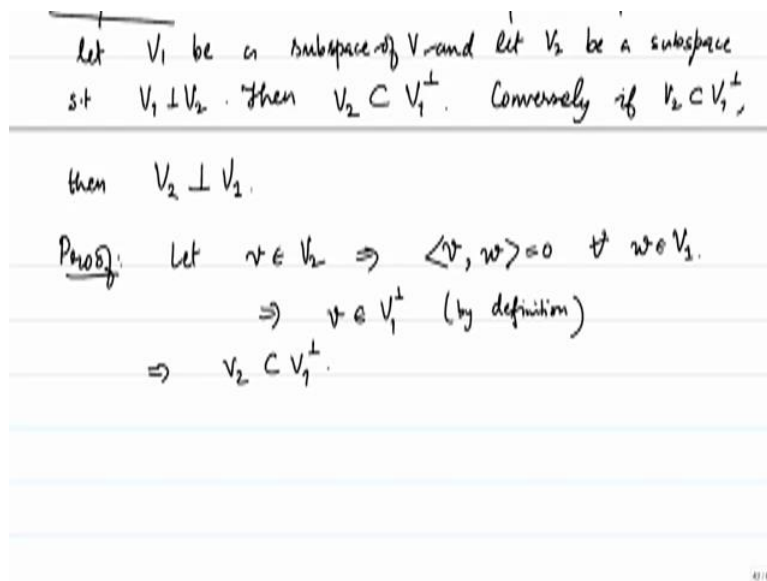 let V₁ be a subspace of V and let V₂ be a subspace
s.t V₁ ⊥ V₂ . Then V₂ ⊂ V₁^⊥. Conversely if V₂ ⊂ V₁^⊥,
then V₂ ⊥ V₁.
Proof: Let v ∈ V₂ ⇒ <v, w> = 0 ∀ w ∈ V₁.
⇒ v ∈ V₁^⊥ (by definition)
⇒ V₂ ⊂ V₁^⊥.